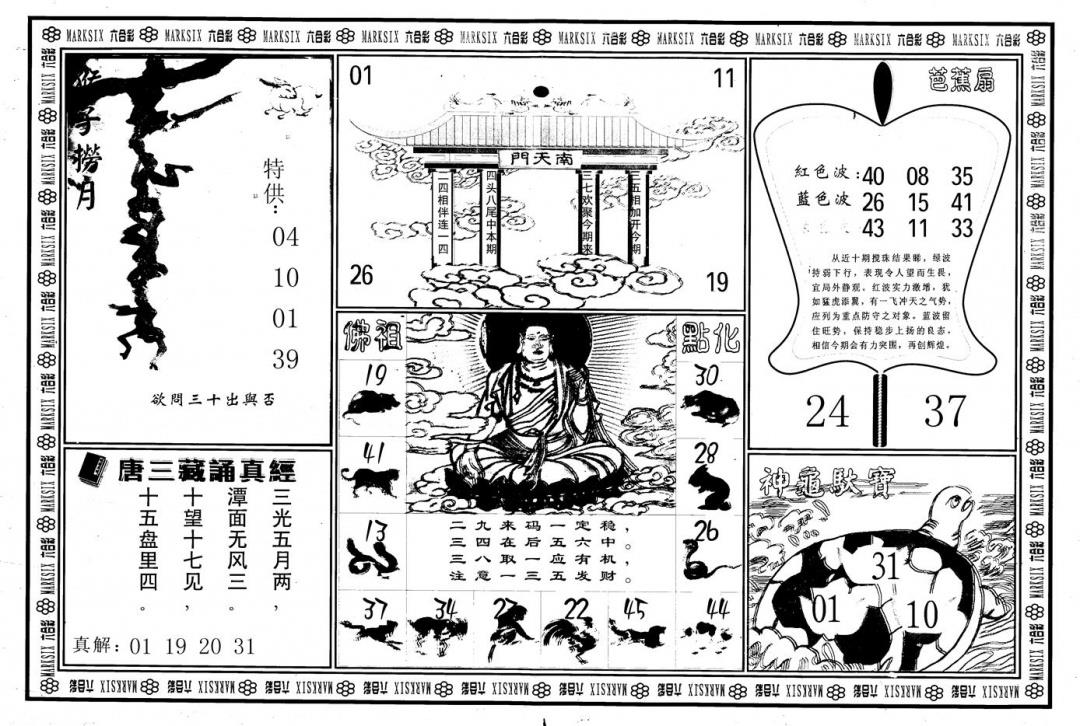 MARKSIX 六合彩 MARKSIX 六合彩 MARKSIX 六合彩 MARKSIX 六合彩 MARKSIX 六合彩 MARKSIX 六合彩 MARKSIX 六合彩 MARKSIX 六合彩 MARKSIX 六合彩 MARKSIX 六合彩
猴子撈月
特供：
04
10
01
39
欲問三十出與否
唐三藏誦真經
三光五月两，
潭面无风三。
十望十七见，
十五盘里四。
真解：01 19 20 31
01
11
南天門
二四相伴连一四
四头八尾中本期
三七欢聚今期来
三五相加开今期
26
19
佛祖
點化
19
30
41
28
13
26
二九来码一定稳，
三四在后五六中。
三八取一应有机，
注意一三五发财。
37
34
23
22
45
44
芭蕉扇
紅色波：40 08 35
藍色波 26 15 41
43 11 33
从近十期搅珠结果睇，绿波
持弱下行，表现令人望而生畏，
宜局外静观。红波实力激增，犹
如猛虎添翼，有一飞冲天之气势，
应列为重点防守之对象。蓝波留
住旺势，保持稳步上扬的良态。
相信今期会有力突围，再创辉煌。
24
37
神龜馱寶
31
01
10